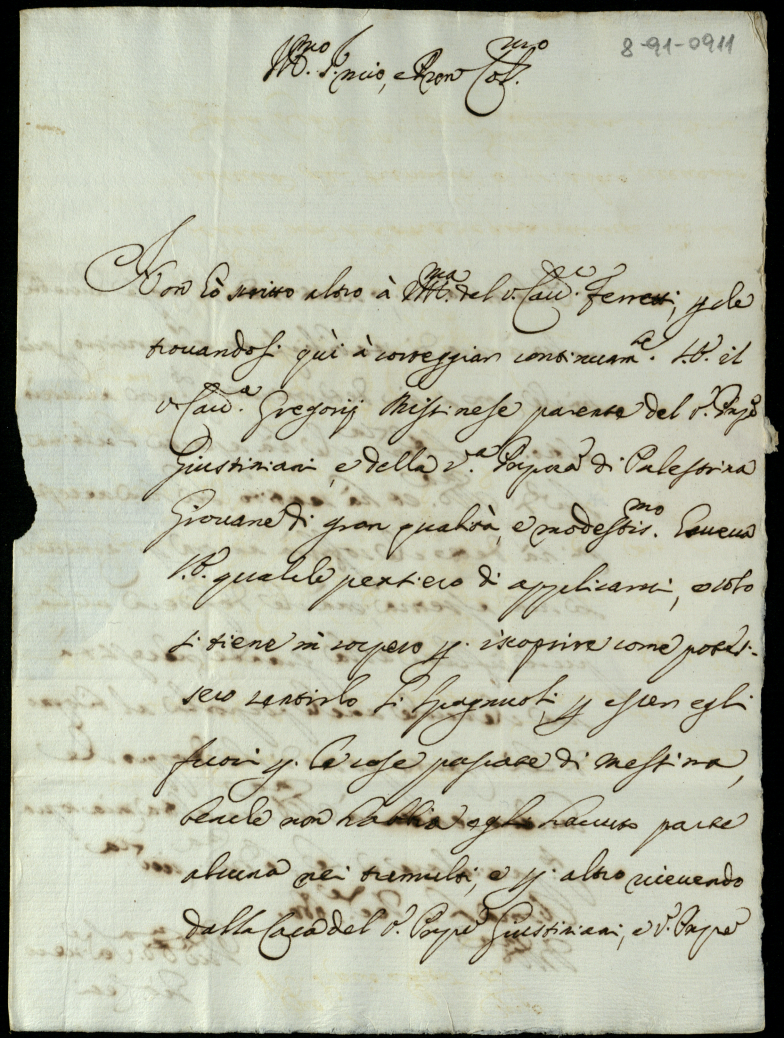 8-91-0911
Ill.mo S.r mio, e Pron Col.mo
Non hò scritto altro à Ill.ma del S. Cau.e Ferretti, p che
trouandosi quì à correggiar continuam.te S.B. il
S. Cau.e Gregorij Missinese parente del S. Prpe
Giustiniani, e della S.a Prpssa di Palestrina
Giouane di gran qualità, e modestis.mo Haueua
S.B. qualche pensiero di applicarui, e solo
si tiene in sospeso p. iscoprire come potes-
sero sentirlo li Spagnuoli, p esser egli
fuori p. le cose passate di Messina,
benche non habbia egli hauuto parte
alcuna nei tumulti, e p. altro riceuendo
dalla Casa del S. Prpe Giustiniani, e S. Prpe